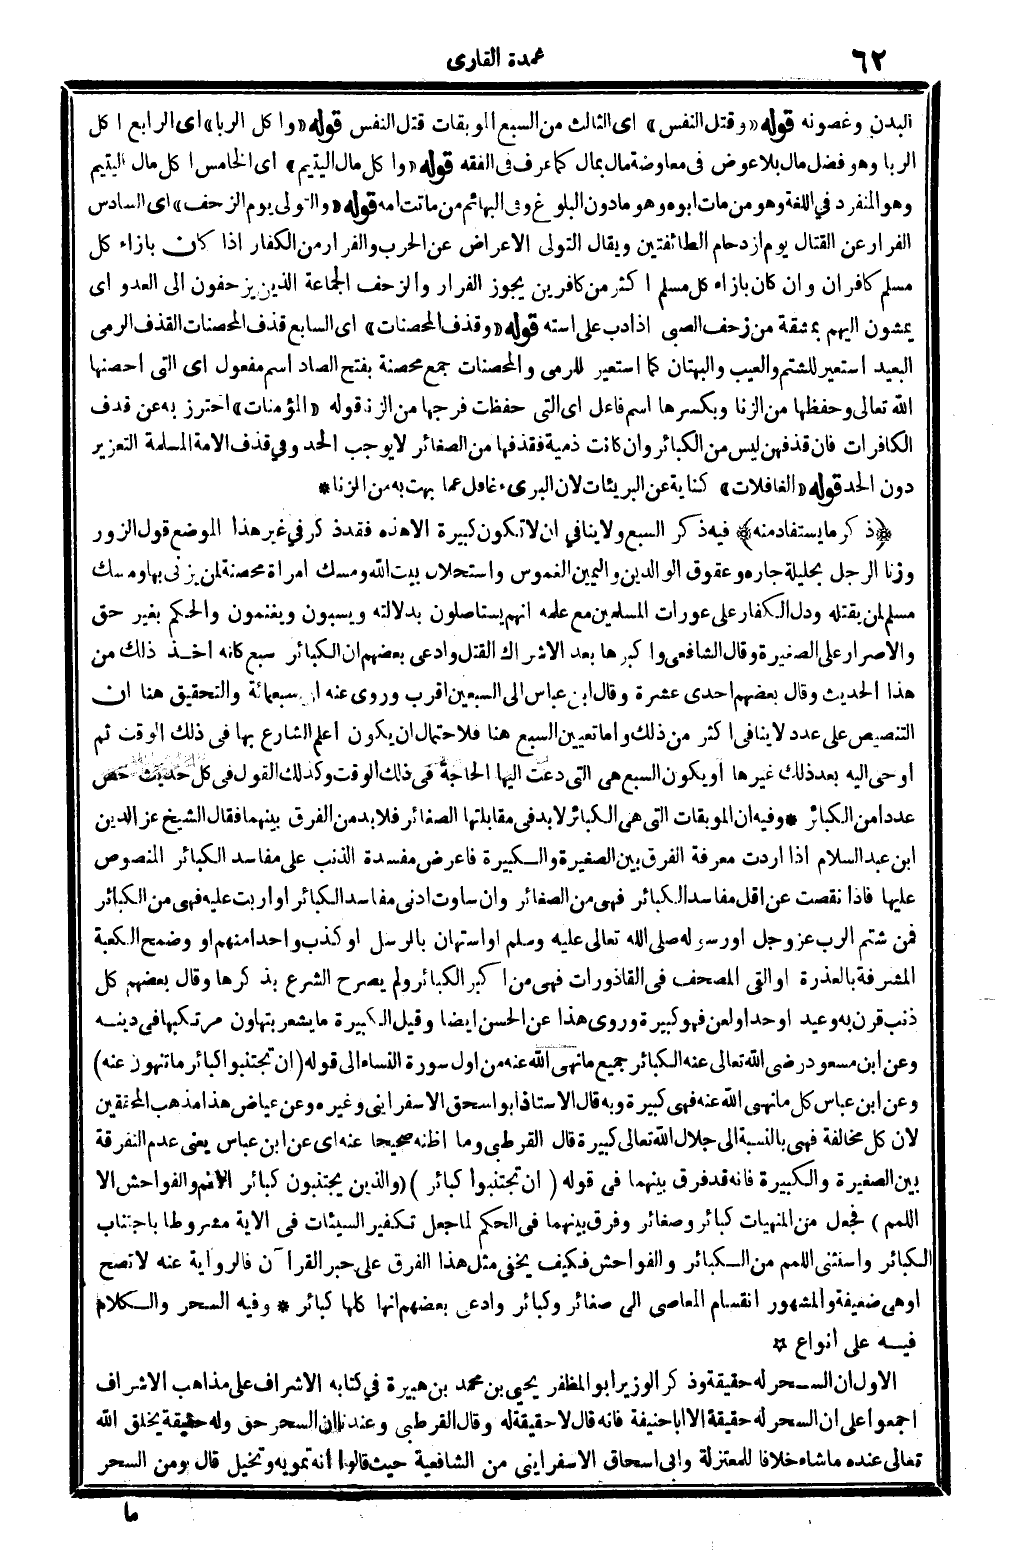 ٦٢
عمدة القارى
البدن وغصونه قوله «وقتل النفس» اى الثالث من السبع الموبقات قتل النفس قوله «واكل الربا» اى الرابع اكل
الربا وهو فضل مال بلا عوض فى معاوضة مال بمال كما عرف فى الفقه قوله «واكل مال اليتيم» اى الخامس اكل مال اليتيم
وهو المنفرد في اللغة وهو من مات ابوه وهو مادون البلوغ وفى البهائم من ماتت امه قوله «والتولى يوم الزحف» اى السادس
الفرار عن القتال يوم ازدحام الطائفتين ويقال التولى الاعراض عن الحرب والفرار من الكفار اذا كان بازاء كل
مسلم كافران وان كان بازاء كل مسلم اكثر من كافرين يجوز الفرار والزحف الجماعة الذين يزحفون الى العدو اى
يمشون اليهم بمشقة من زحف الصبى اذا دب على استه قوله «وقذف المحصنات» اى السابع قذف المحصنات القذف الرمى
البعيد استعير للشتم والعيب والبهتان كما استعير للرمى والمحصنات جمع محصنة بفتح الصاد اسم مفعول اى التى احصنها
الله تعالى وحفظها من الزنا وبكسرها اسم فاعل اى التى حفظت فرجها من الزنا قوله «المؤمنات» احترز به عن قذف
الكافرات فان قذفهن ليس من الكبائر وان كانت ذمية فقذفها من الصغائر لا يوجب الحد وفي قذف الامة المسلمة التعزير
دون الحد قوله «الغافلات» كناية عن البريئات لان البرىء غافل عما بهت به من الزنا *
﴿ ذكر ما يستفاد منه ﴾ فيه ذكر السبع ولا ينافي ان لا تكون كبيرة الا هذه فقد ذكر في غير هذا الموضع قول الزور
وزنا الرجل بحليلة جاره وعقوق الوالدين واليمين الغموس واستحلال بيت الله ومسك امراة محصنة لمن يزنى بها ومسك
مسلم لمن يقتله ودل الكفار على عورات المسلمين مع علمه انهم يستاصلون بدلالته ويسبون ويغنمون والحكم بغير حق
والاصرار على الصغيرة وقال الشافعى واكبرها بعد الاشراك القتل وادعى بعضهم ان الكبائر سبع كانه اخذ ذلك من
هذا الحديث وقال بعضهم احدى عشرة وقال ابن عباس الى السبعين اقرب وروى عنه الى سبعمائة والتحقيق هنا ان
التنصيص على عدد لا ينافى اكثر من ذلك واما تعيين السبع هنا فلاحتمال ان يكون أعلم الشارع بها فى ذلك الوقت ثم
أوحى اليه بعد ذلك غيرها أو يكون السبع هى التى دعت اليها الحاجة فى ذلك الوقت وكذلك القول فى كل حديث خص
عددا من الكبائر * وفيه ان الموبقات التى هى الكبائر لابد فى مقابلتها الصغائر فلابد من الفرق بينهما فقال الشيخ عز الدين
ابن عبد السلام اذا اردت معرفة الفرق بين الصغيرة والكبيرة فاعرض مفسدة الذنب على مفاسد الكبائر المنصوص
عليها فاذا نقصت عن اقل مفاسد الكبائر فهى من الصغائر وان ساوت ادنى مفاسد الكبائر او اربت عليه فهى من الكبائر
فمن شتم الرب عز وجل او رسوله صلى الله تعالى عليه وسلم او استهان بالرسل او كذب واحدا منهم او وضمح الكعبة
المشرفة بالعذرة او القى المصحف فى القاذورات فهى من اكبر الكبائر ولم يصرح الشرع بذكرها وقال بعضهم كل
ذنب قرن به وعيد او حد او لعن فهو كبيرة وروى هذا عن الحسن ايضا وقيل الكبيرة ما يشعر بتهاون مرتكبها فى دينه
وعن ابن مسعود رضى الله تعالى عنه الكبائر جميع ما نهى الله عنه من اول سورة النساء الى قوله (ان تجتنبوا كبائر ما تنهون عنه)
وعن ابن عباس كل ما نهى الله عنه فهى كبيرة وبه قال الاستاذ ابو اسحق الاسفراينى وغيره وعن عياض هذا مذهب المحققين
لان كل مخالفة فهى بالنسبة الى جلال الله تعالى كبيرة قال القرطبى وما اظنه صحيحا عنه اى عن ابن عباس يعنى عدم التفرقة
بين الصغيرة والكبيرة فانه قد فرق بينهما فى قوله ( ان تجتنبوا كبائر ) (والذين يجتنبون كبائر الاثم والفواحش الا
اللمم ) فجعل من المنهيات كبائر وصغائر وفرق بينهما فى الحكم لما جعل تكفير السيئات فى الاية مشروطا باجتناب
الكبائر واستثنى اللمم من الكبائر والفواحش فكيف يخفى مثل هذا الفرق على حبر القرآن فالرواية عنه لا تصح
او هى ضعيفة والمشهور انقسام المعاصى الى صغائر وكبائر وادعى بعضهم انها كلها كبائر * وفيه السحر والكلام
فيه على أنواع *
الاول ان السحر له حقيقة وذكر الوزير ابو المظفر يحيى بن محمد بن هبيرة في كتابه الاشراف على مذاهب الاشراف
اجمعوا على ان السحر له حقيقة الا ابا حنيفة فانه قال لا حقيقة له وقال القرطبى وعندنا ان السحر حق وله حقيقة يخلق الله
تعالى عنده ماشاء خلافا للمعتزلة وابى اسحاق الاسفراينى من الشافعية حيث قالوا أنه تمويه وتخيل قال ومن السحر
ما